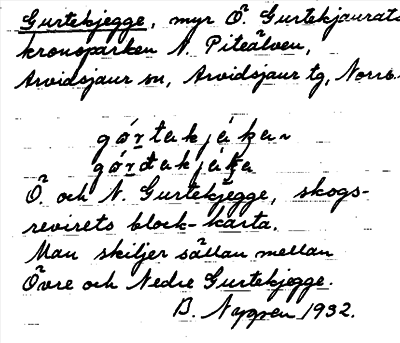 Gurtekjegge, myr Ö. Gurtekjaurats
kronoparken N. Piteälven,
Arvidsjaur sn, Arvidsjaur tg, Norrb.
Ö. och N. Gurtekjegge, skogs-
revirets block-karta.
Man skiljer sällan mellan
Övre och Nedre Gurtekjegge.
B. Nygren 1932.